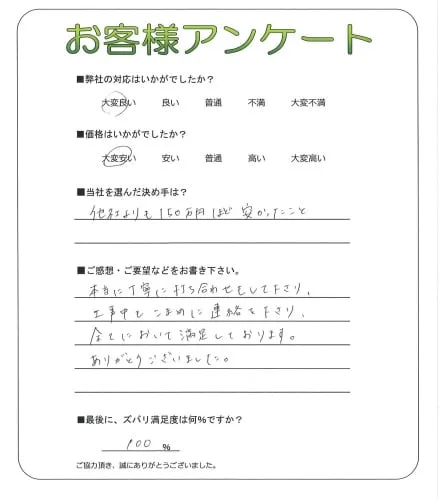 お客様アンケート
■弊社の対応はいかがでしたか？
大変良い 良い 普通 不満 大変不満
■価格はいかがでしたか？
大変安い 安い 普通 高い 大変高い
■当社を選んだ決め手は？
他社よりも150万円ほど安かったこと
■ご感想・ご要望などをお書き下さい。
本当に丁寧に打ち合わせもして下さり、
工事中もこまめに連絡を下さり、
全てにおいて満足しております。
ありがとうございました。
■最後に、ズバリ満足度は何%ですか？
100 %
ご協力頂き、誠にありがとうございました。